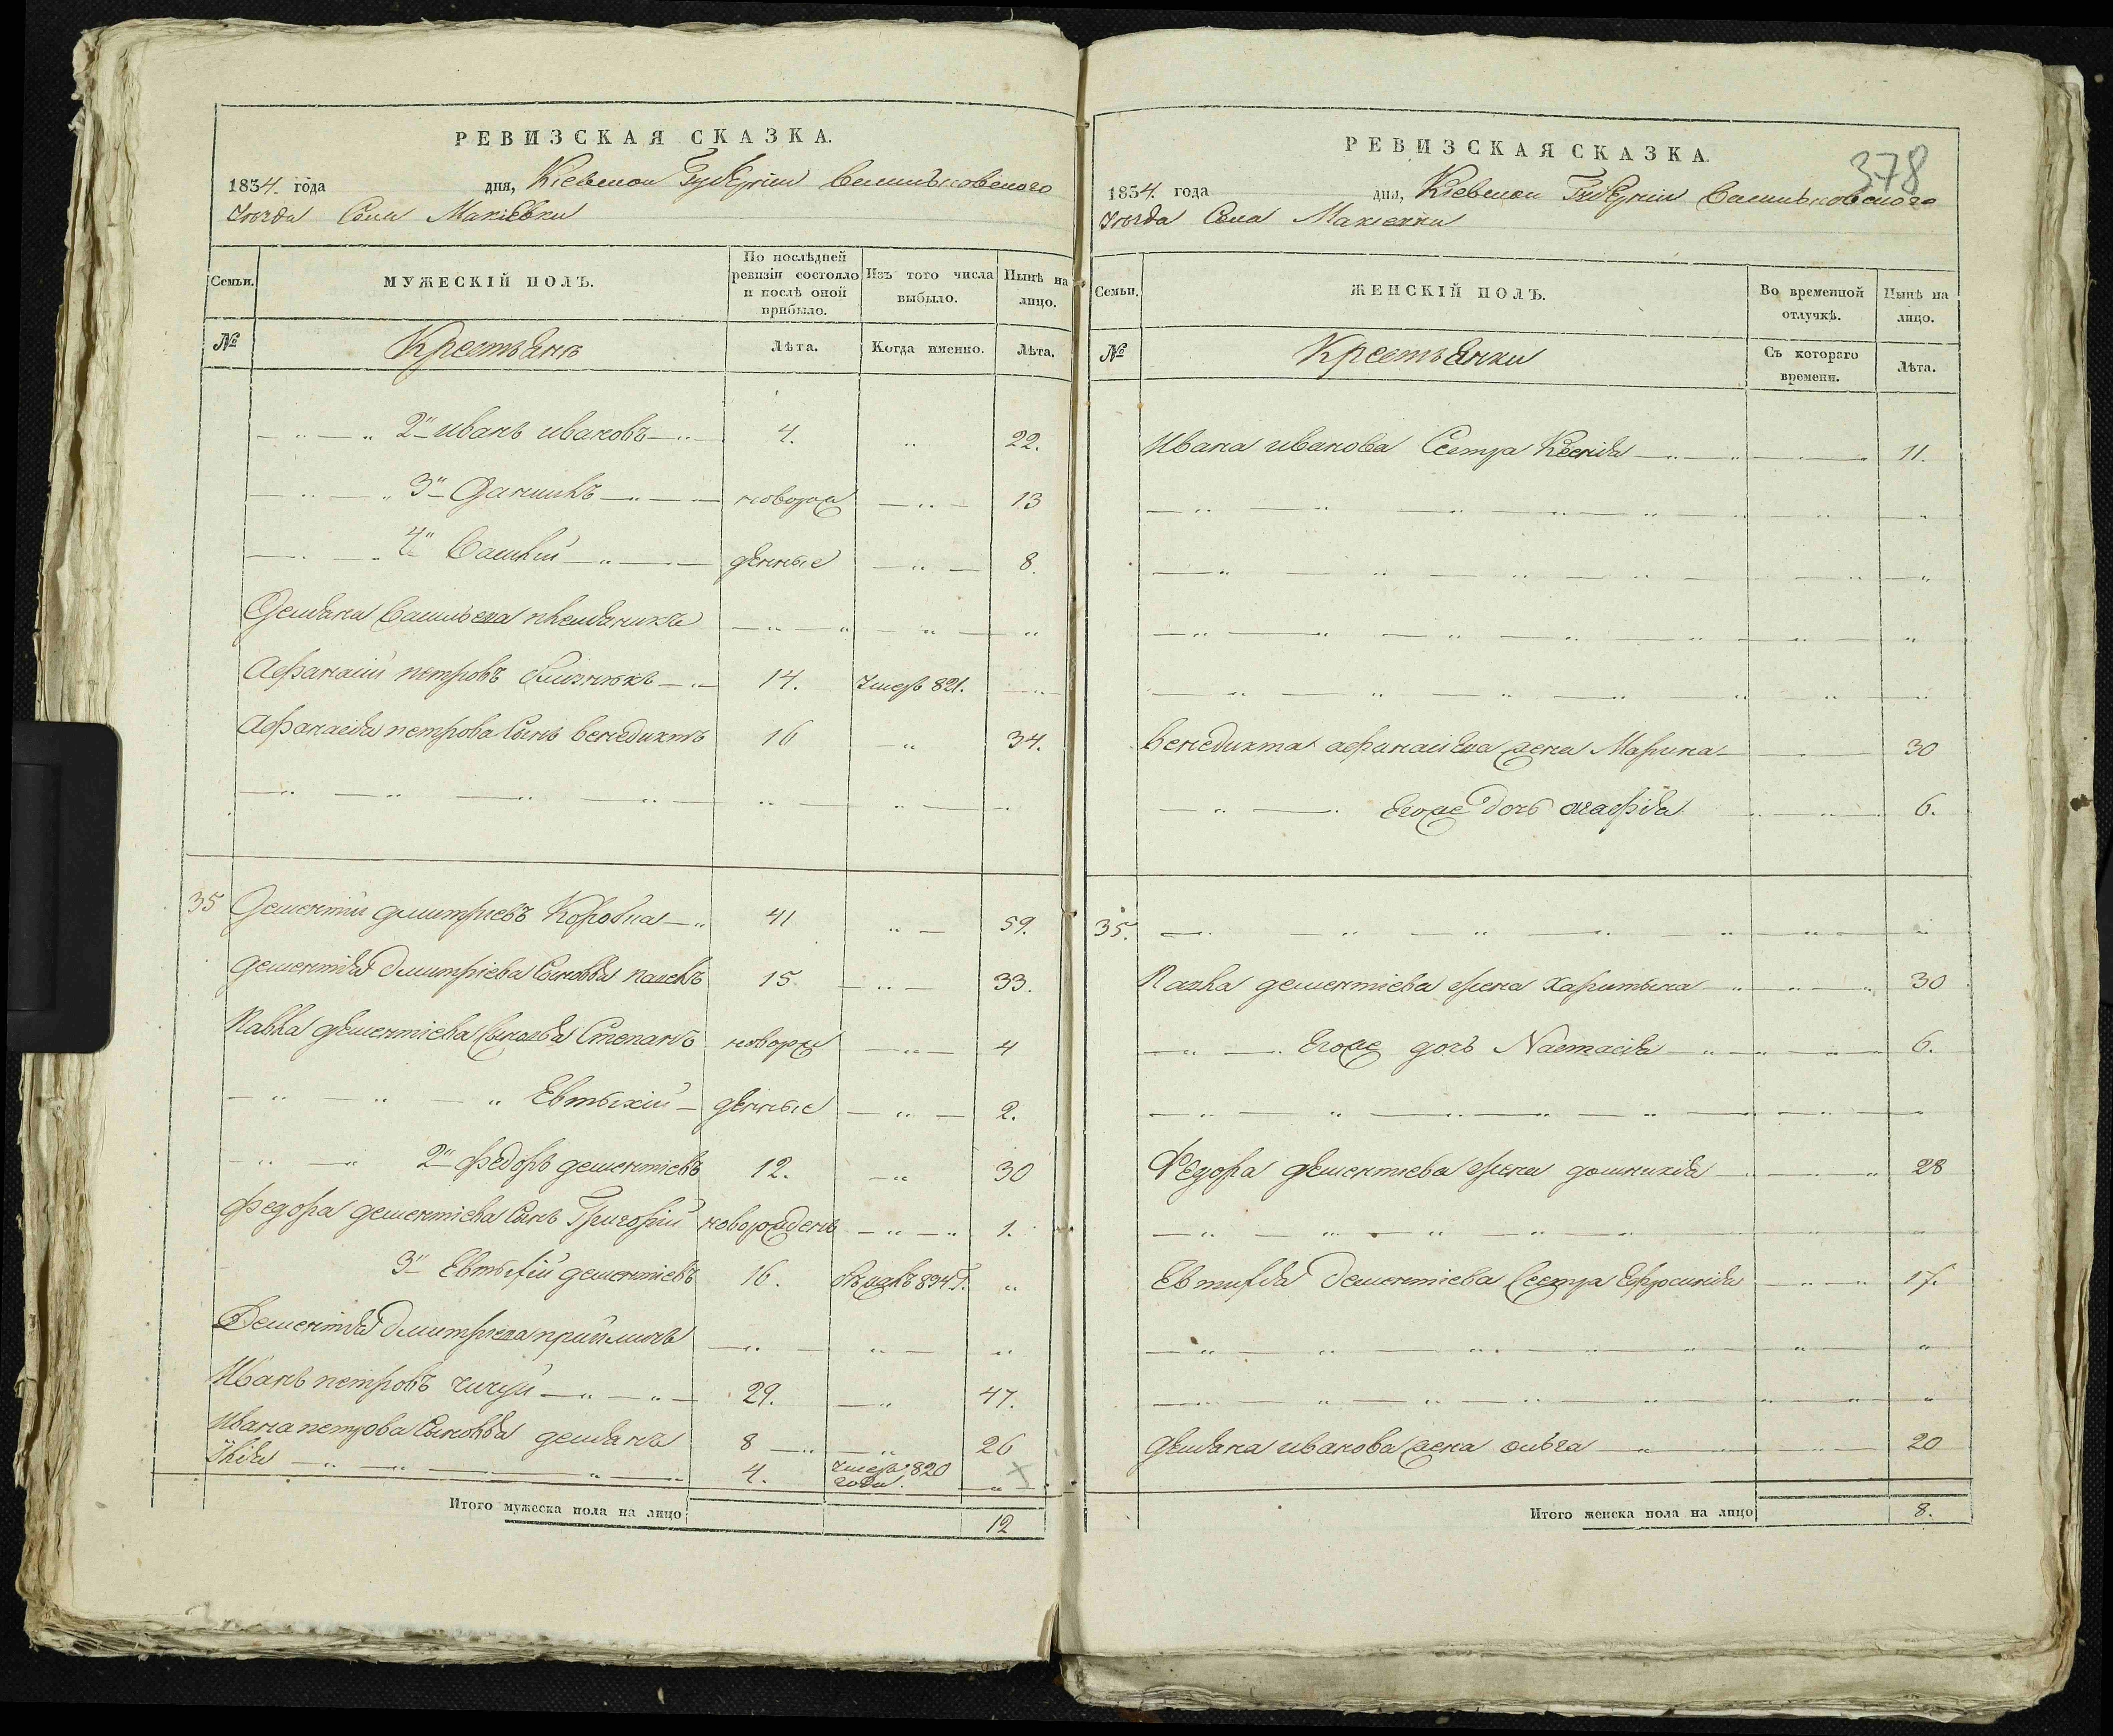 РЕВИЗСКАЯ СКАЗКА.
1834. года дня, Кіевской Губерніи Васильковского
Уезда Села Макіевки
Семьи. МУЖЕСКІЙ ПОЛЪ. По послѣдней ревизіи состояло и послѣ оной прибыло. Изъ того числа выбыло. Нынѣ на лицо.
№ Крестьянъ Лѣта. Когда именно. Лѣта.
2й иванъ ивановъ 4. 22.
3й Даниилъ новорож 13
4й Василій денные 8.
Демьяна Васильева племяникъ
Афанасий петровъ близнюкъ 14. умеръ 821.
Афанасия петрова Сынъ венедиктъ 16 34.
35 Дементий дмитриевъ Коробка 41 59.
дементия дмитріева Сыновья павелъ 15 33.
Павла дементиева Сыновья Степанъ новорж 4
Евтыхій денные 2.
2й федоръ дементиевъ 12. 30
федора дементиева Сынъ Григорій новорожденъ 1.
3й Евтыхій дементиевъ 16. 834 Г.
Дементия дмитриева приймычъ
Иванъ петровъ 29. 47.
Ивана петрова Сыновья демьянъ 8 26
Илия 4. умеръ 820 года.
Итого мужеска пола на лицо 12
РЕВИЗСКАЯ СКАЗКА.
378
1834. года дня, Кіевской Губерніи Васильковского
Уезда Села Макіевки
Семьи. ЖЕНСКІЙ ПОЛЪ. Во временной отлучкѣ. Нынѣ на лицо.
№ Крестьянки Съ котораго времени. Лѣта.
Ивана иванова Сестра Ксения 11.
венедикта афанасиева жена Марина 30
Егоже дочь агафія 6.
35.
Павла дементиева жена харитына 30
Егоже дочь Настасия 6.
Федора дементиева жена домникия 28
Евтифия дементиева Сестра Ефросиния 17.
демьяна иванова жена ольга 20
Итого женска пола на лицо 8.